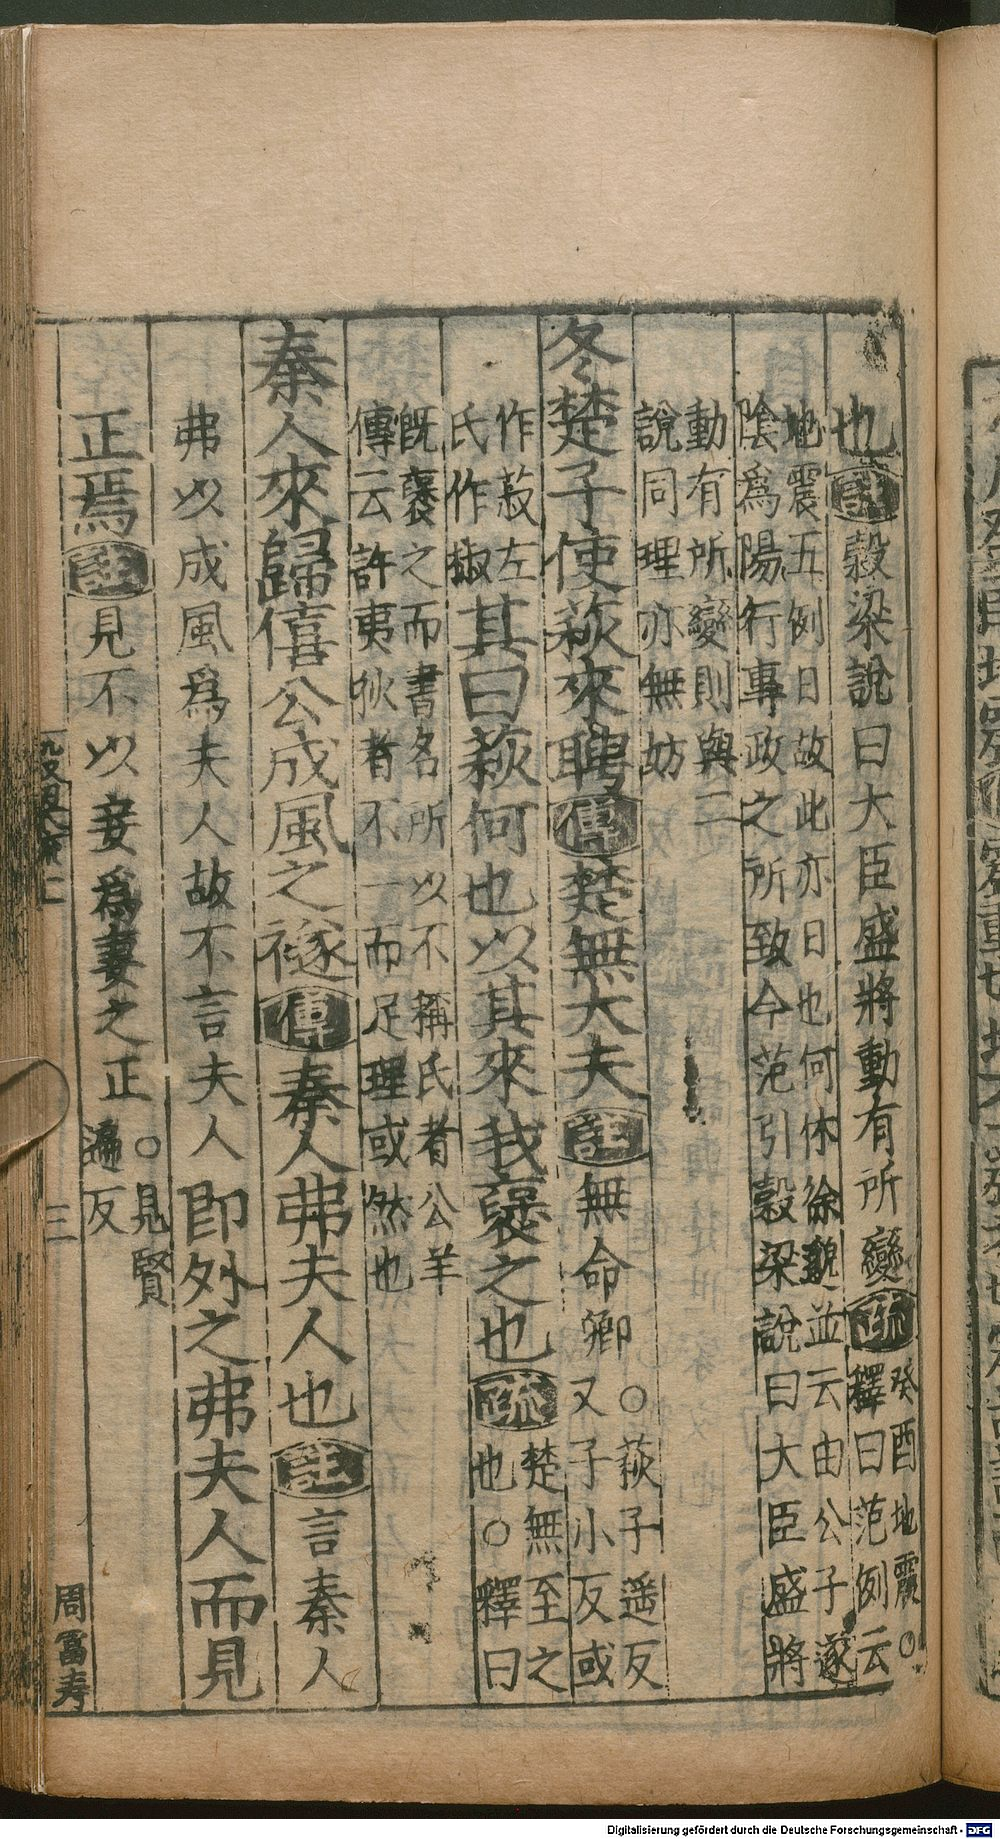 也註穀梁說曰大臣盛將動有所變疏癸酉地震○
釋曰范例云
地震五例日故此亦日也何休徐邈並云由公子遂
陰爲陽行專政之所致今范引穀梁說曰大臣盛將
動有所變則與二
說同理亦無妨
冬楚子使萩來聘傳楚無大夫註無命卿○萩子遥反
又子小反或
作菽左
氏作椒其曰萩何也以其來我褒之也疏楚無至之
也○釋曰
旣褒之而書名所以不稱氏者公羊
傳云許夷狄者不一而足理或然也
秦人來歸僖公成風之襚傳秦人弗夫人也註言秦人
弗以成風爲夫人故不言夫人即外之弗夫人而見
正焉註見不以妾爲妻之正○見賢
遍反
三
周富寿
Digitalisierung gefördert durch die Deutsche Forschungsgemeinschaft - DFG